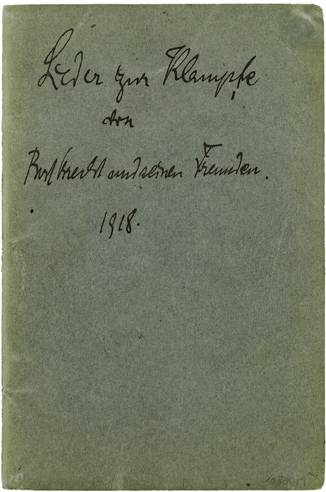 Lieder zur Klampfe
von
Bert Brecht und seinen Freunden.
1918.